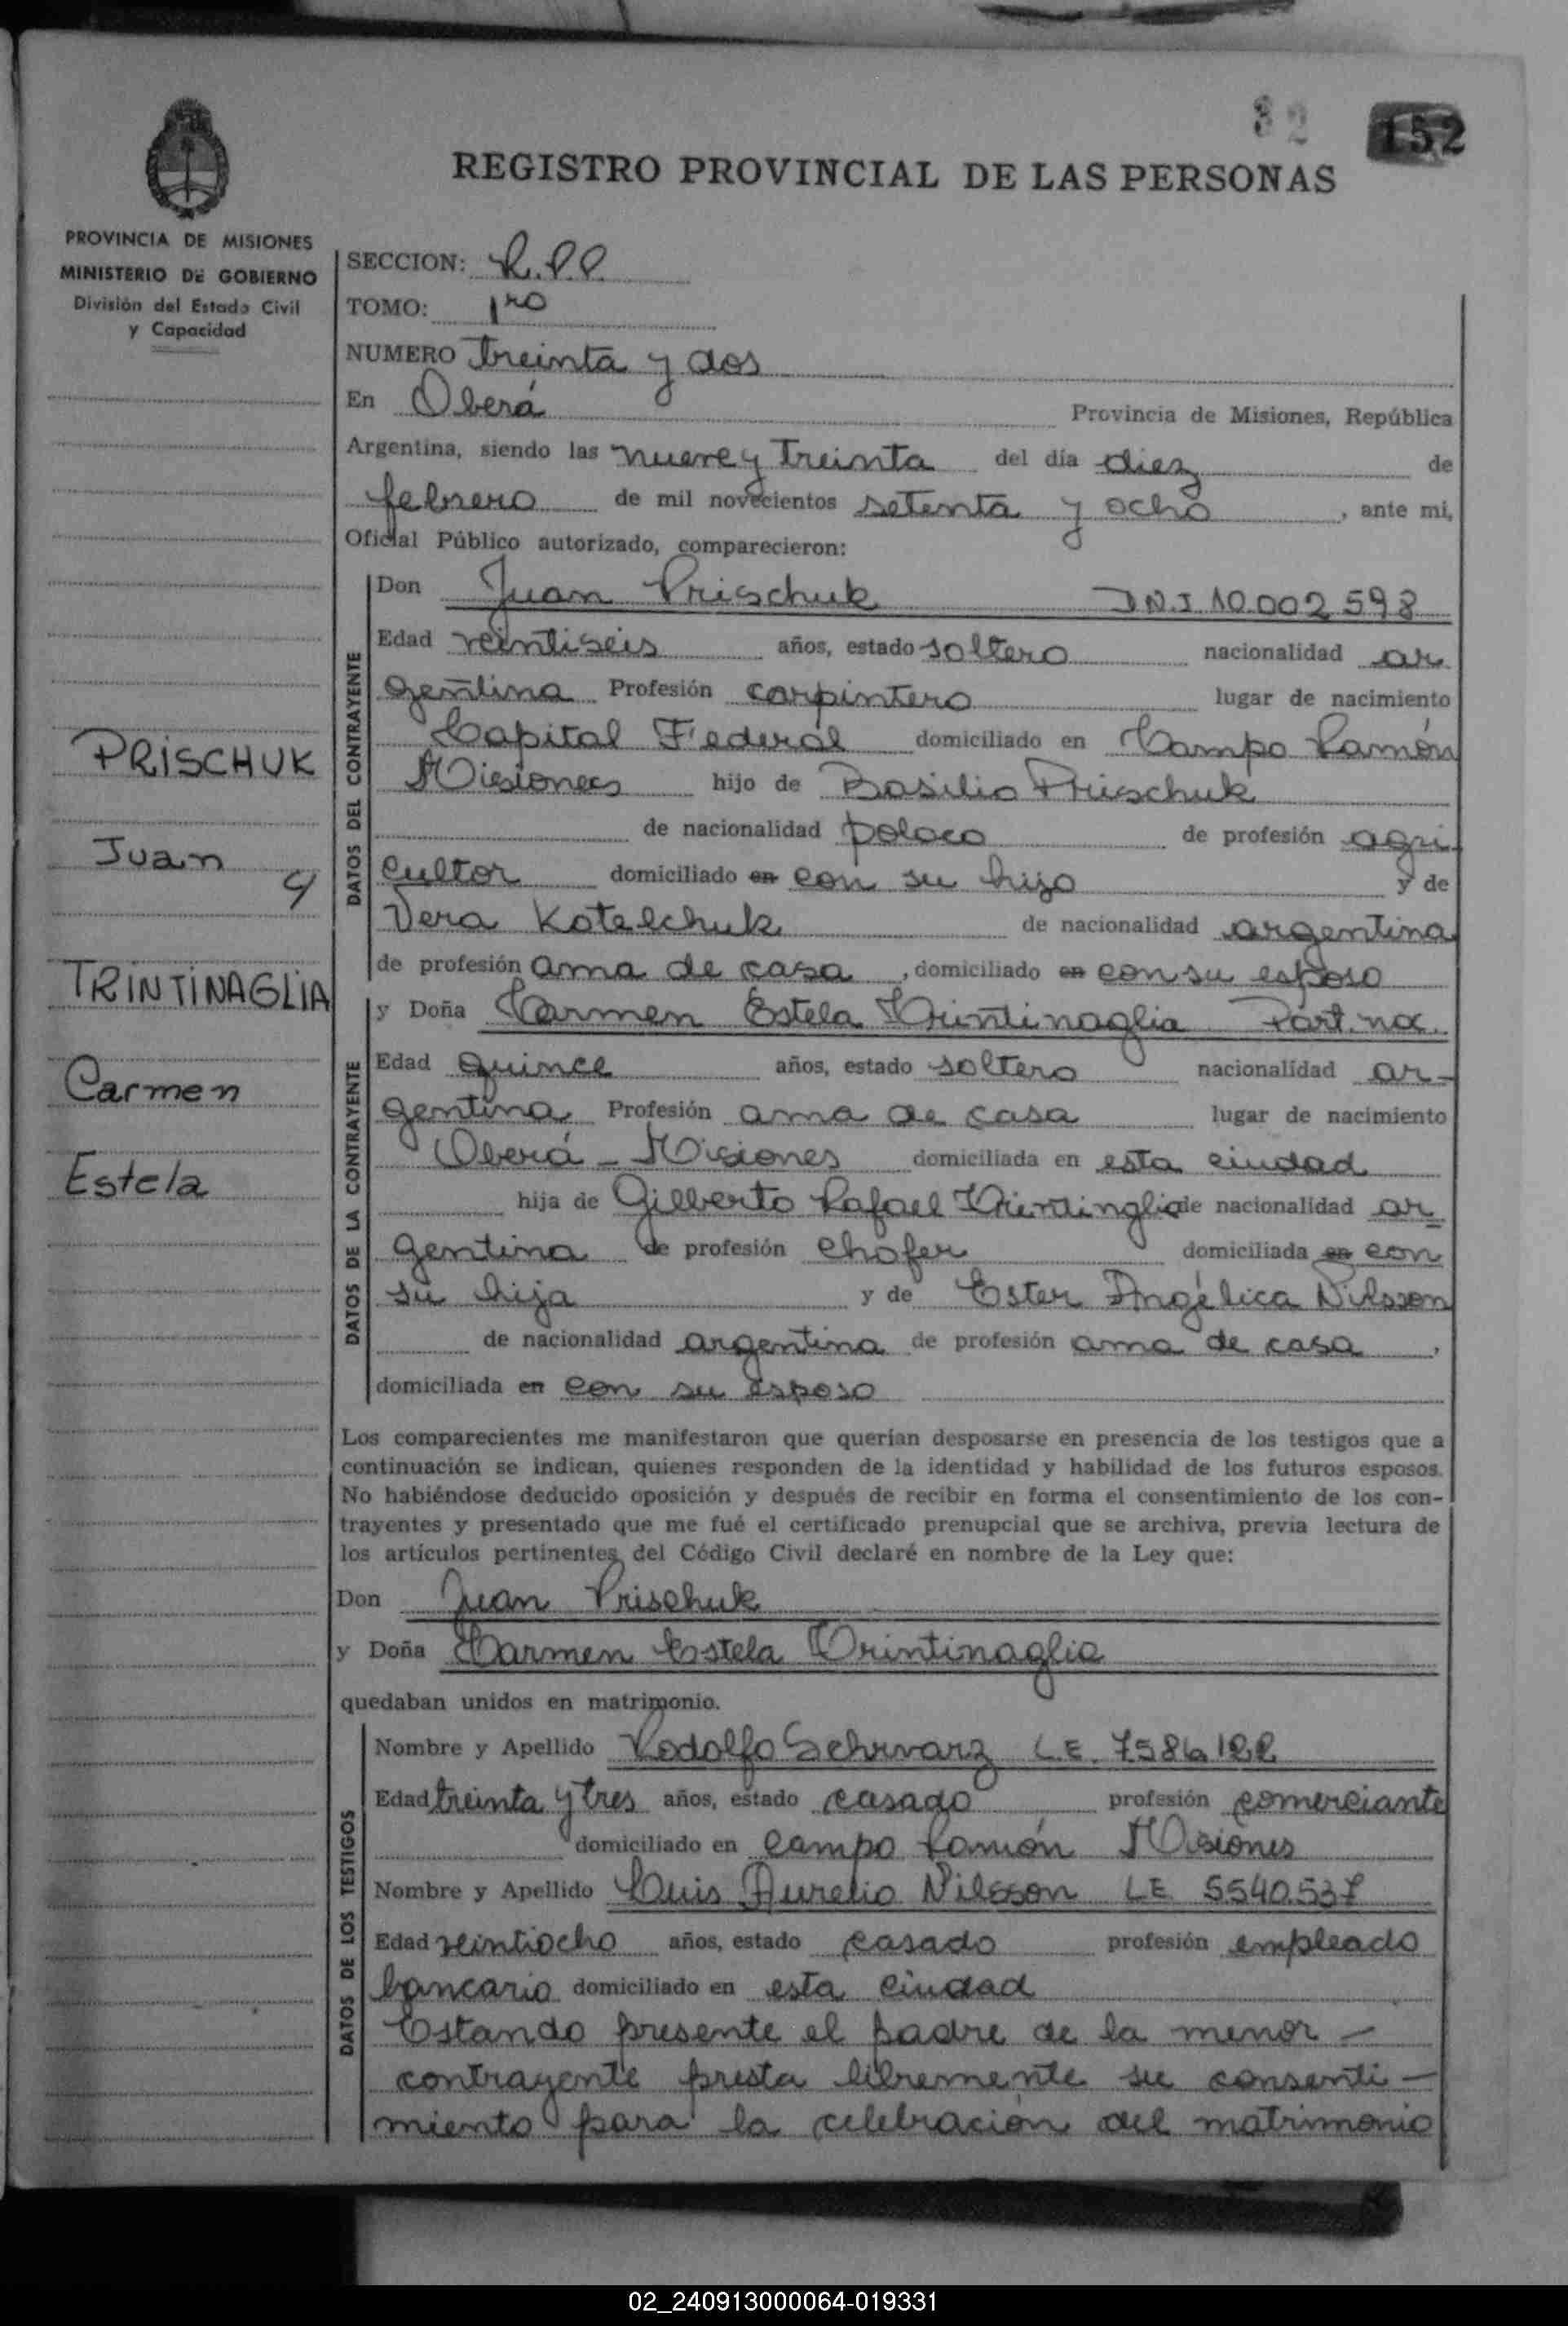 32 152
REGISTRO PROVINCIAL DE LAS PERSONAS
PROVINCIA DE MISIONES
MINISTERIO DE GOBIERNO
División del Estado Civil
y Capacidad
PRISCHUK
Juan
y
TRINTINAGLIA
Carmen
Estela
SECCION: R.P.P.
TOMO: 1ro
NUMERO treinta y dos
En Oberá Provincia de Misiones, República
Argentina, siendo las nueve y treinta del día diez de
febrero de mil novecientos setenta y ocho, ante mi,
Oficial Público autorizado, comparecieron:
DATOS DEL CONTRAYENTE
Don Juan Prischuk DNI 10.002.598
Edad veintiseis años, estado soltero nacionalidad ar
gentina Profesión carpintero lugar de nacimiento
Capital Federal domiciliado en Campo Ramón
Misiones hijo de Basilio Prischuk
de nacionalidad polaco de profesión agri-
cultor domiciliado en con su hijo y de
Vera Kotelchuk de nacionalidad argentina
de profesión ama de casa, domiciliado en con su esposo
DATOS DE LA CONTRAYENTE
y Doña Carmen Estela Trintinaglia Part. nac.
Edad quince años, estado soltero nacionalidad ar-
gentina Profesión ama de casa lugar de nacimiento
Oberá - Misiones domiciliada en esta ciudad
hija de Gilberto Rafael Trintinglia de nacionalidad ar
gentina de profesión chofer domiciliada en con
su hija y de Ester Angélica Nilsson
de nacionalidad argentina de profesión ama de casa,
domiciliada en con su esposo
Los comparecientes me manifestaron que querían desposarse en presencia de los testigos que a
continuación se indican, quienes responden de la identidad y habilidad de los futuros esposos.
No habiéndose deducido oposición y después de recibir en forma el consentimiento de los con-
trayentes y presentado que me fué el certificado prenupcial que se archiva, previa lectura de
los artículos pertinentes del Código Civil declaré en nombre de la Ley que:
Don Juan Prischuk
y Doña Carmen Estela Trintinaglia
quedaban unidos en matrimonio.
DATOS DE LOS TESTIGOS
Nombre y Apellido Rodolfo Schwarz L.E.
Edad treinta y tres años, estado casado profesión comerciante
domiciliado en campo Ramón Misiones
Nombre y Apellido Luis Aurelio Nilsson L.E. 5540.537
Edad veintiocho años, estado casado profesión empleado
bancario domiciliado en esta ciudad
Estando presente el padre de la menor -
contrayente presta libremente su consenti-
miento para la celebración del matrimonio
02_240913000064-019331